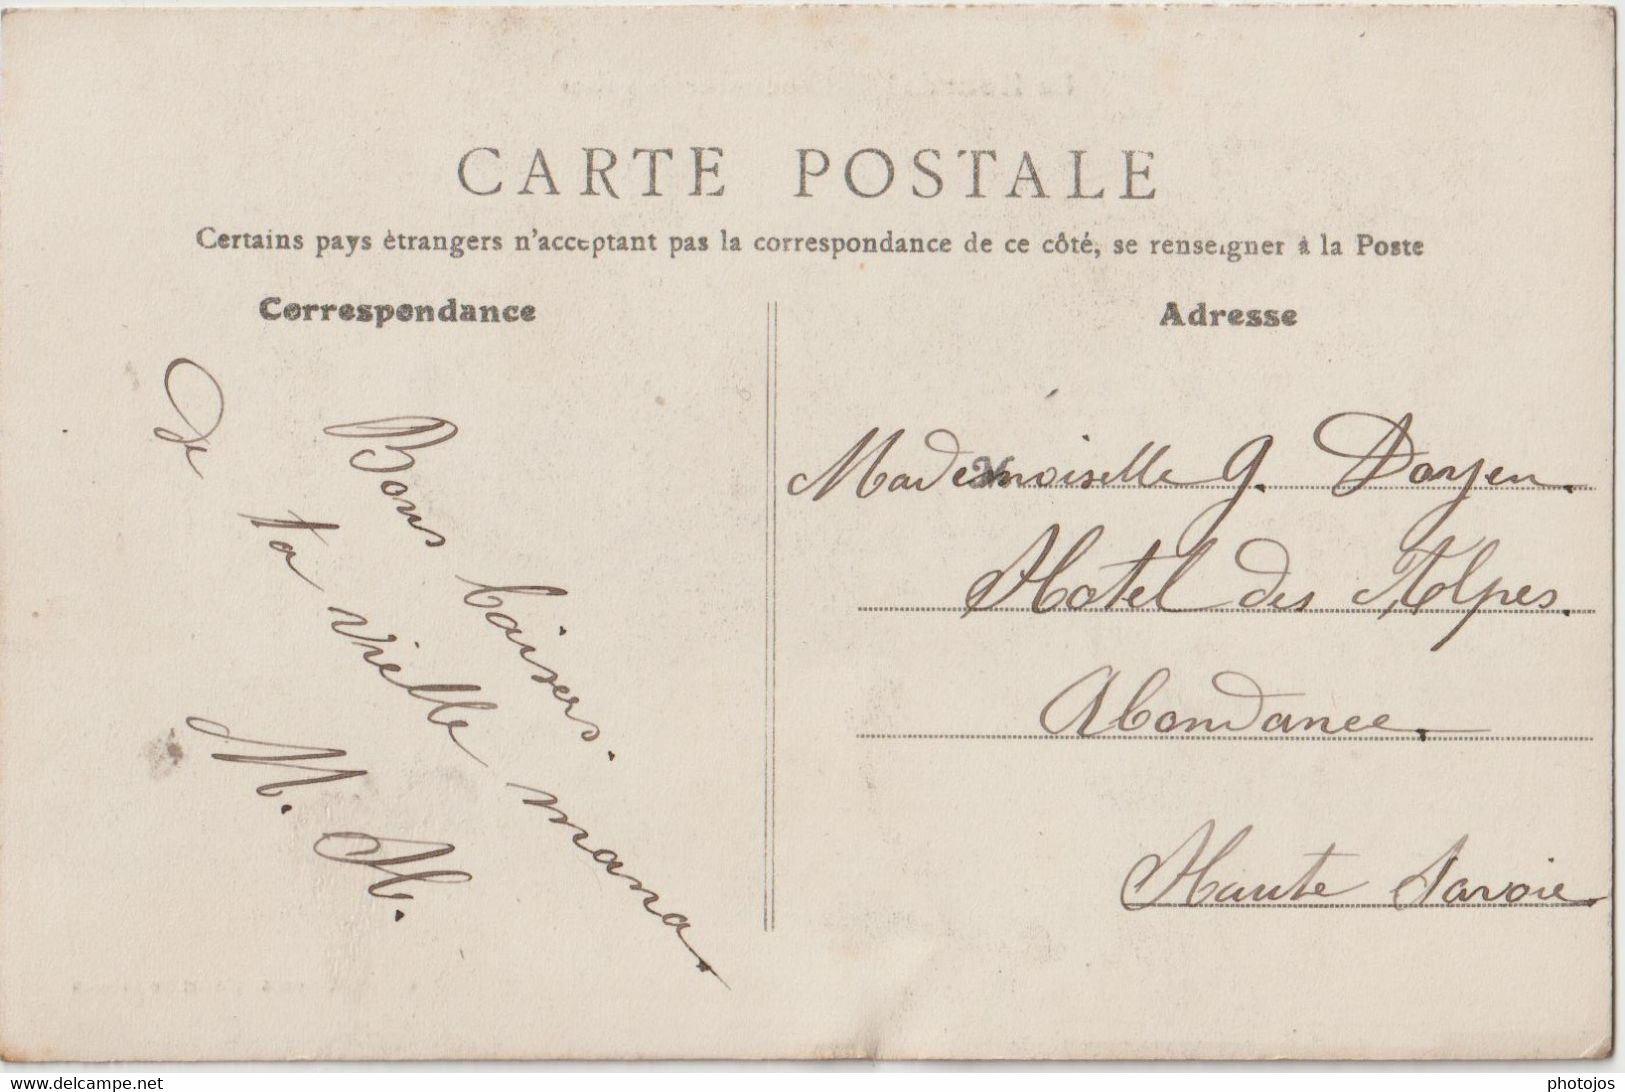 CARTE POSTALE
Certains pays étrangers n'acceptant pas la correspondance de ce côté, se renseigner à la Poste
Correspondance
Adresse
Bons baisers.
De ta vieille mana.
M. H.
Mademoiselle G. Doyen.
M
Hotel des Alpes.
Abondance.
Haute Savoie
www.delcampe.net
photojos